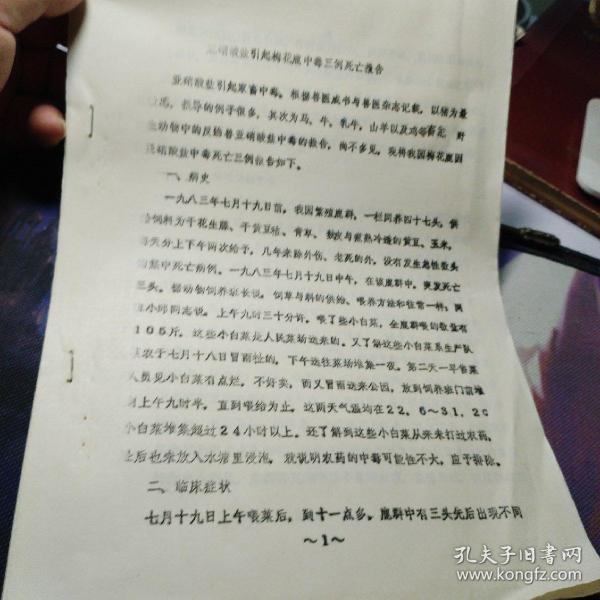 亚硝酸盐引起梅花鹿中毒三例死亡报告
亚硝酸盐引起家畜中毒。根据兽医成书与兽医杂志记载，以猪为最
报导的例子很多，其次为马、牛、乳牛，山羊以及鸡等畜龙 野
生动物中的反刍兽亚硝酸盐中毒的报告，尚不多见，现将我园梅花鹿因
亚硝酸盐中毒死亡三例报告如下。
一、病史
一九八三年七月十九日前，我园繁殖鹿群，一栏四养四十七头，供
给饲料为干花生藤、干黄豆秸、青草、麸皮与煮熟冷透的黄豆、玉米，
每天分上下午两次给予，几年来除外伤、老死的外，没有发生急性数头
集中死亡病例。一九八三年七月十九日中午，在该鹿群中，突发死亡
三头。据动物饲养班长说，饲草与料的供给、喂养方法和往常一样；
小邱同志说，上午九时三十分许，喂了些小白菜，全鹿群喂的数量有
105斤。这些小白菜是人民菜场送来的。又了解这些小白菜系生产队
菜农于七月十八日冒雨扯的，下午送往菜场堆集一夜。第二天一早售菜
人员见小白菜有点烂，不好卖，而又冒雨送来公园，放到饲养班门前堆
到上午九时半，直到喂给为止。这两天气温均在22．6～31．2C
小白菜堆集超过24小时以上。还了解到这些小白菜从来未打过农药，
扯后也未放入水塘里浸泡，就说明农药的中毒可能性不大，应于排除。
二、临床症状
七月十九日上午喂菜后，到十一点多，鹿群中有三头先后出现不同
～1～
孔夫子旧书网
www.kongfz.com